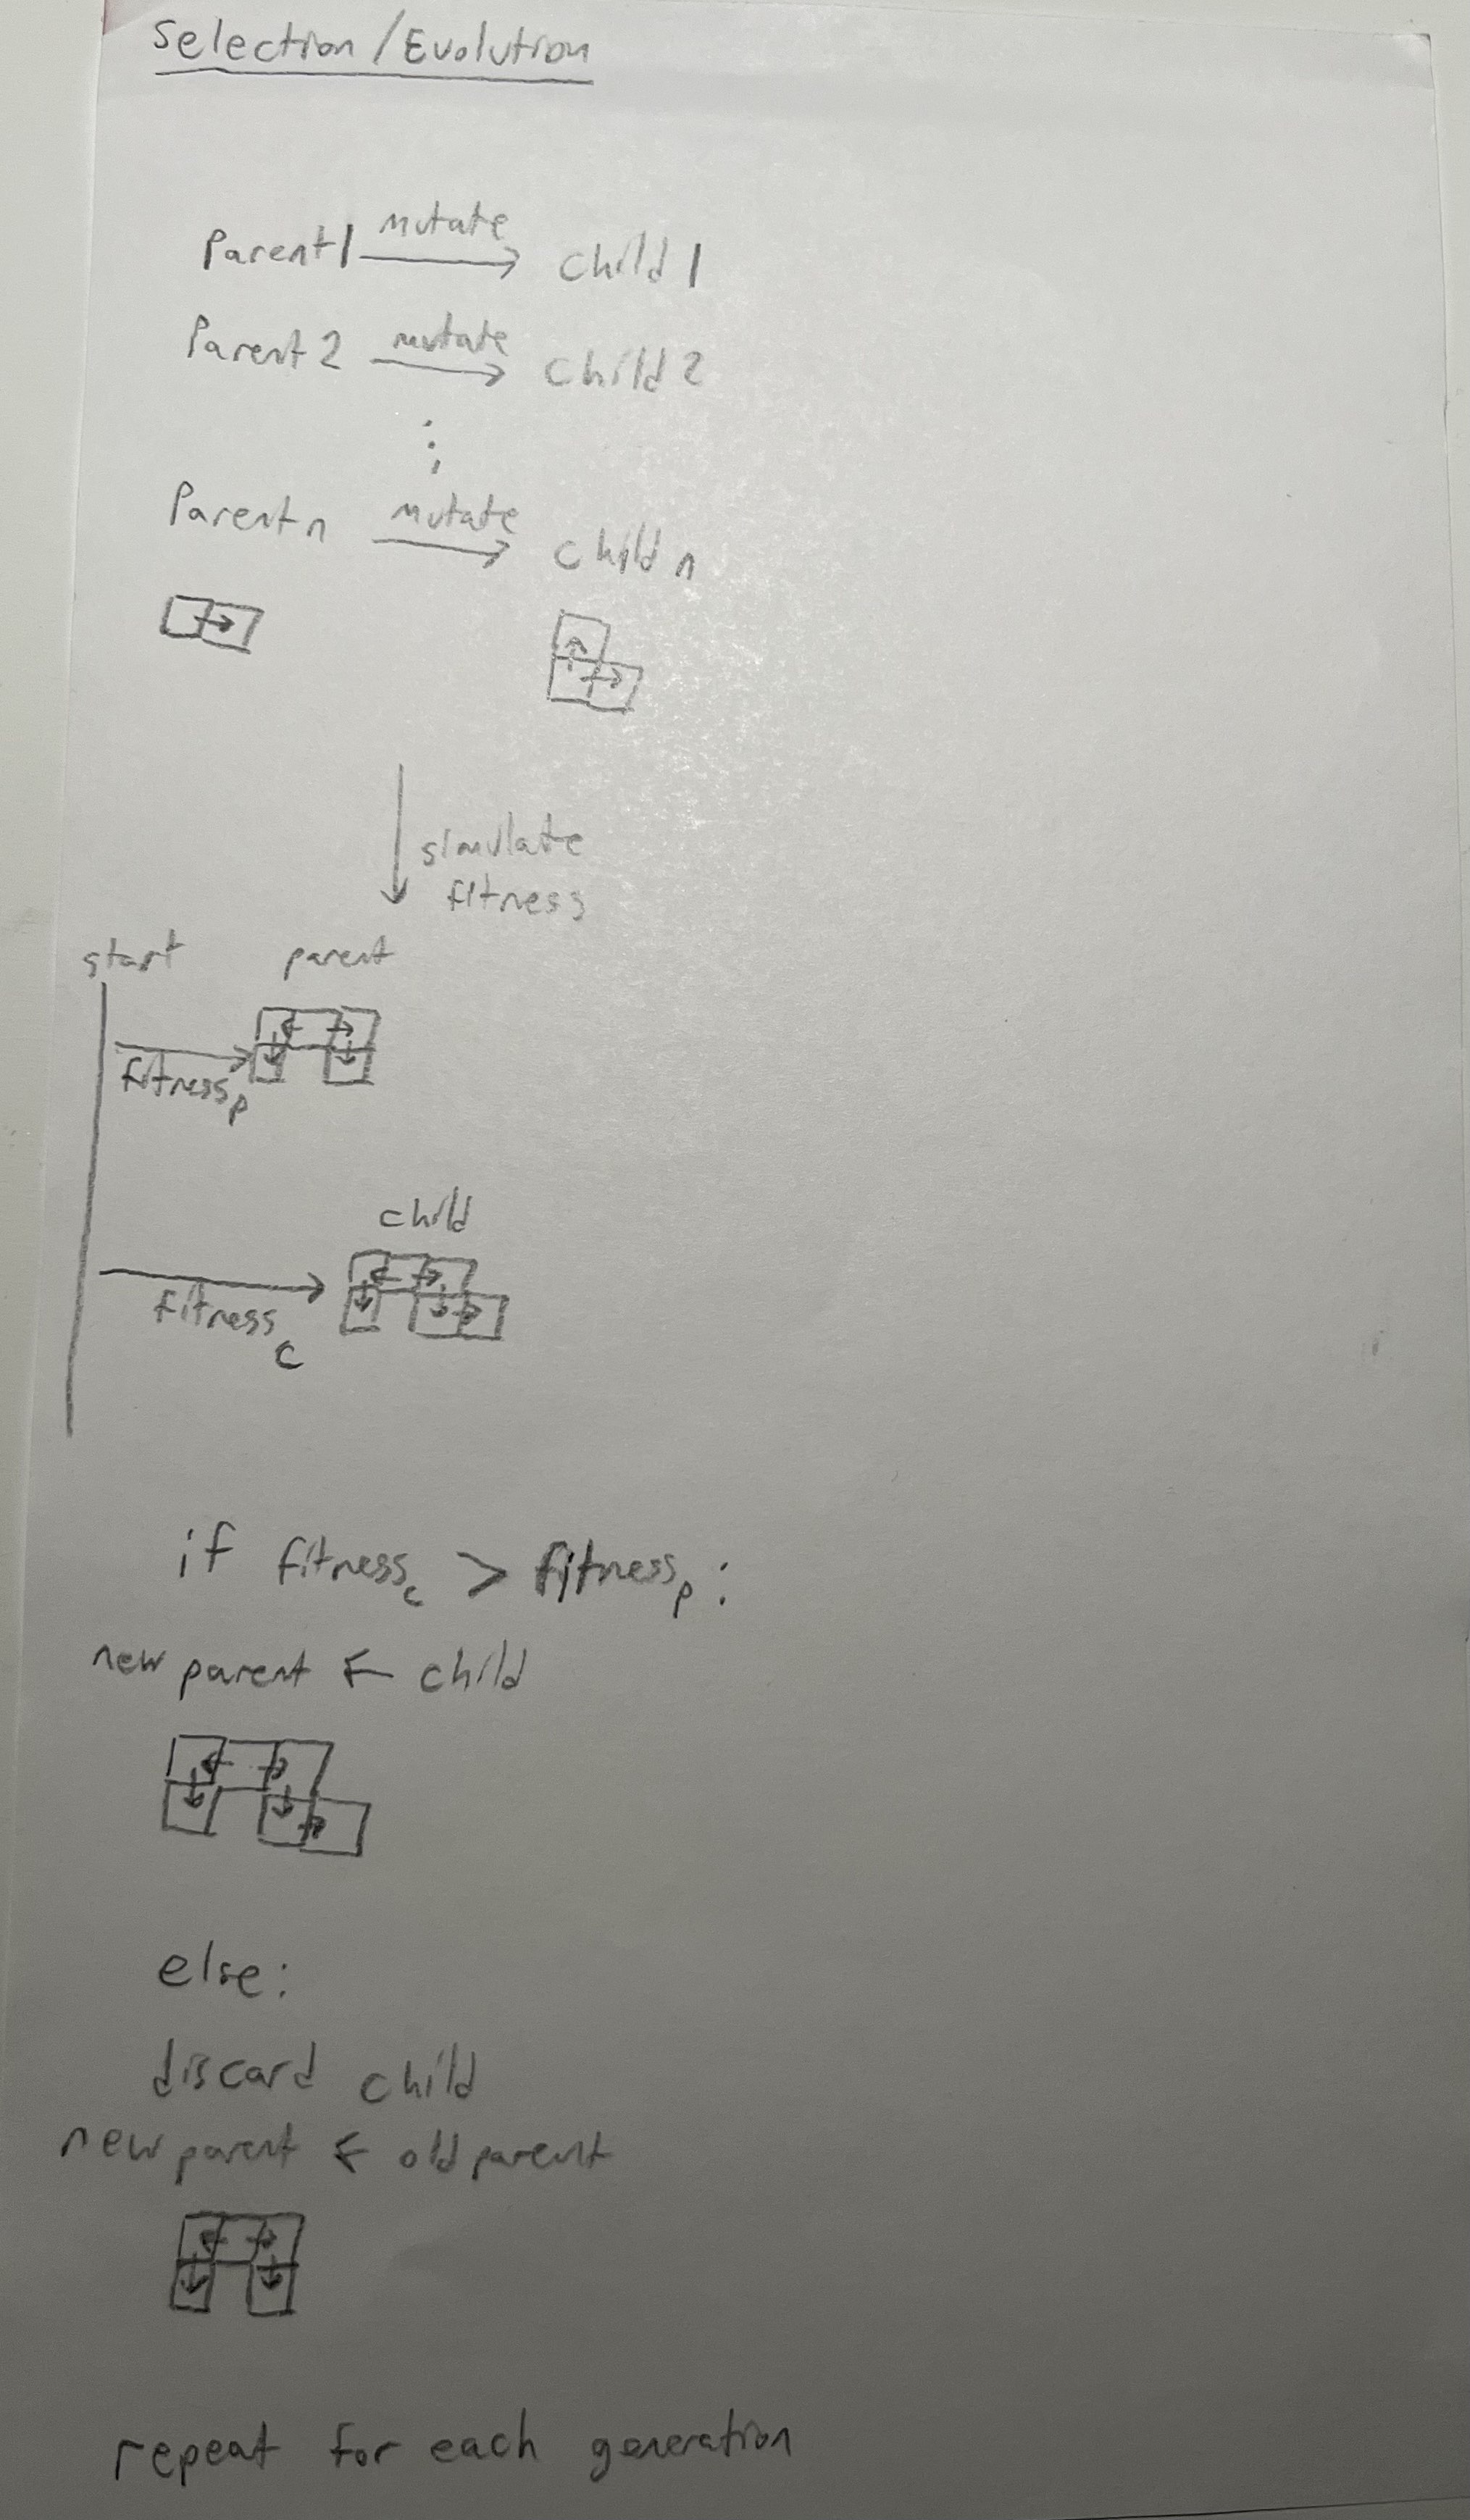 Selection/Evolution
Parent1 mutate → child 1
Parent 2 mutate → child 2
⋮
Parent n mutate → child n
simulate
fitness
start parent
fitness_p
child
fitness_c
if fitness_c > fitness_p:
new parent ← child
else:
discard child
new parent ← old parent
repeat for each generation